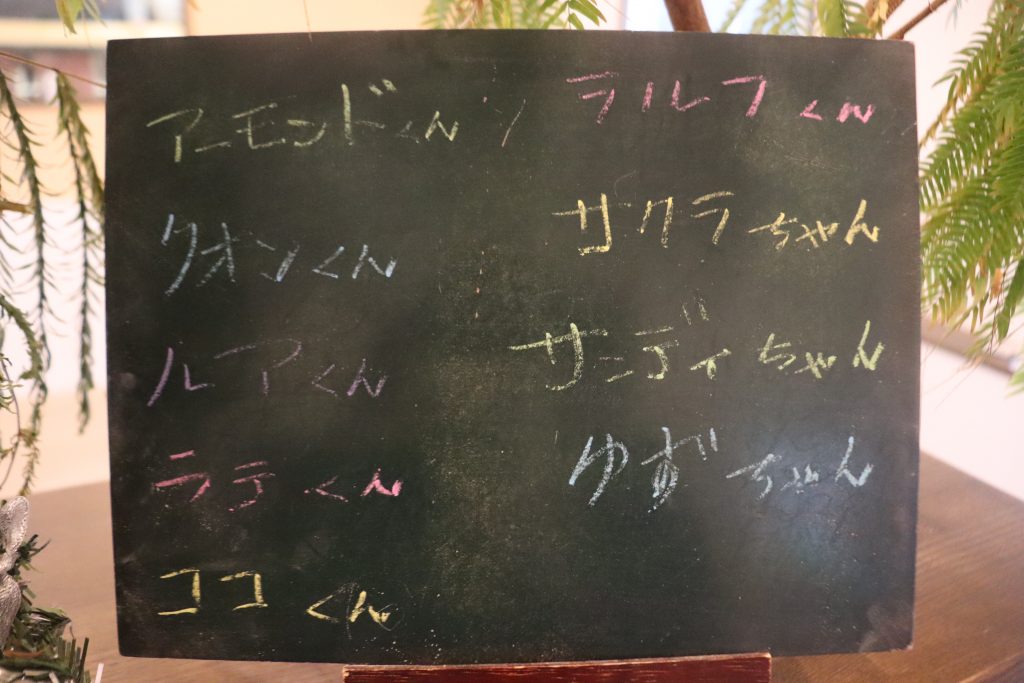 アーモンドくん
クオンくん
ルアくん
ラテくん
ココくん
ラルフくん
サクラちゃん
サンディちゃん
ゆずちゃん